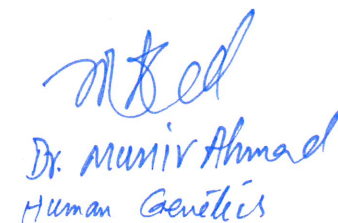 Dr. Munir Ahmad
Human Genetics